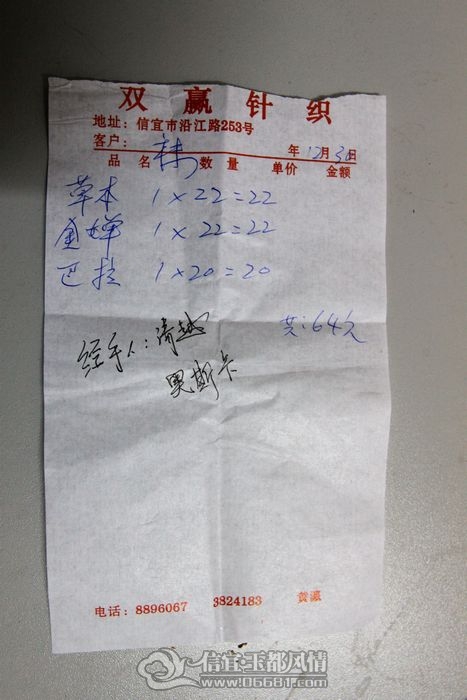 双赢针织
地址：信宜市沿江路253号
客户： 年12月30日
品名 数量 单价 金额
草本 1×22=22
金婵 1×22=22
巴拉 1×20=20
共：64元
经手人：清越
奥斯卡
电话：8896067 8824183 黄瀛
信宜玉都风情
www.06681.com